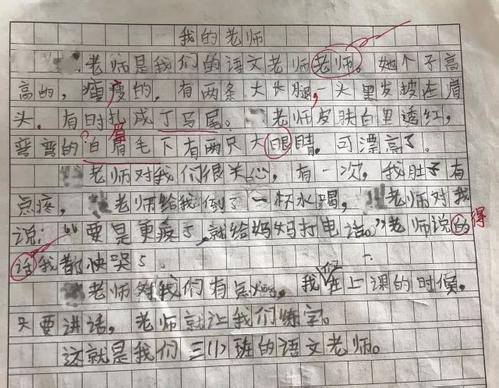 我的老师
老师是我们的语文老师老师。她个子高
高的，瘦瘦的，有两条大长腿，一头黑发披在肩
头，有时扎成了马尾。老师皮肤白里透红，
弯弯的白眉毛下有两只大眼睛，可漂亮了。
老师对我们很关心，有一次，我肚子有
点疼，老师给我倒了一杯水喝，老师对我
说：“要是更疼了，就给妈妈打电话。”老师说的得
话我都快哭了。
老师对我们有点，我在上课的时候。
只要讲话，老师就让我们练字。
这就是我们三(1)班的语文老师。